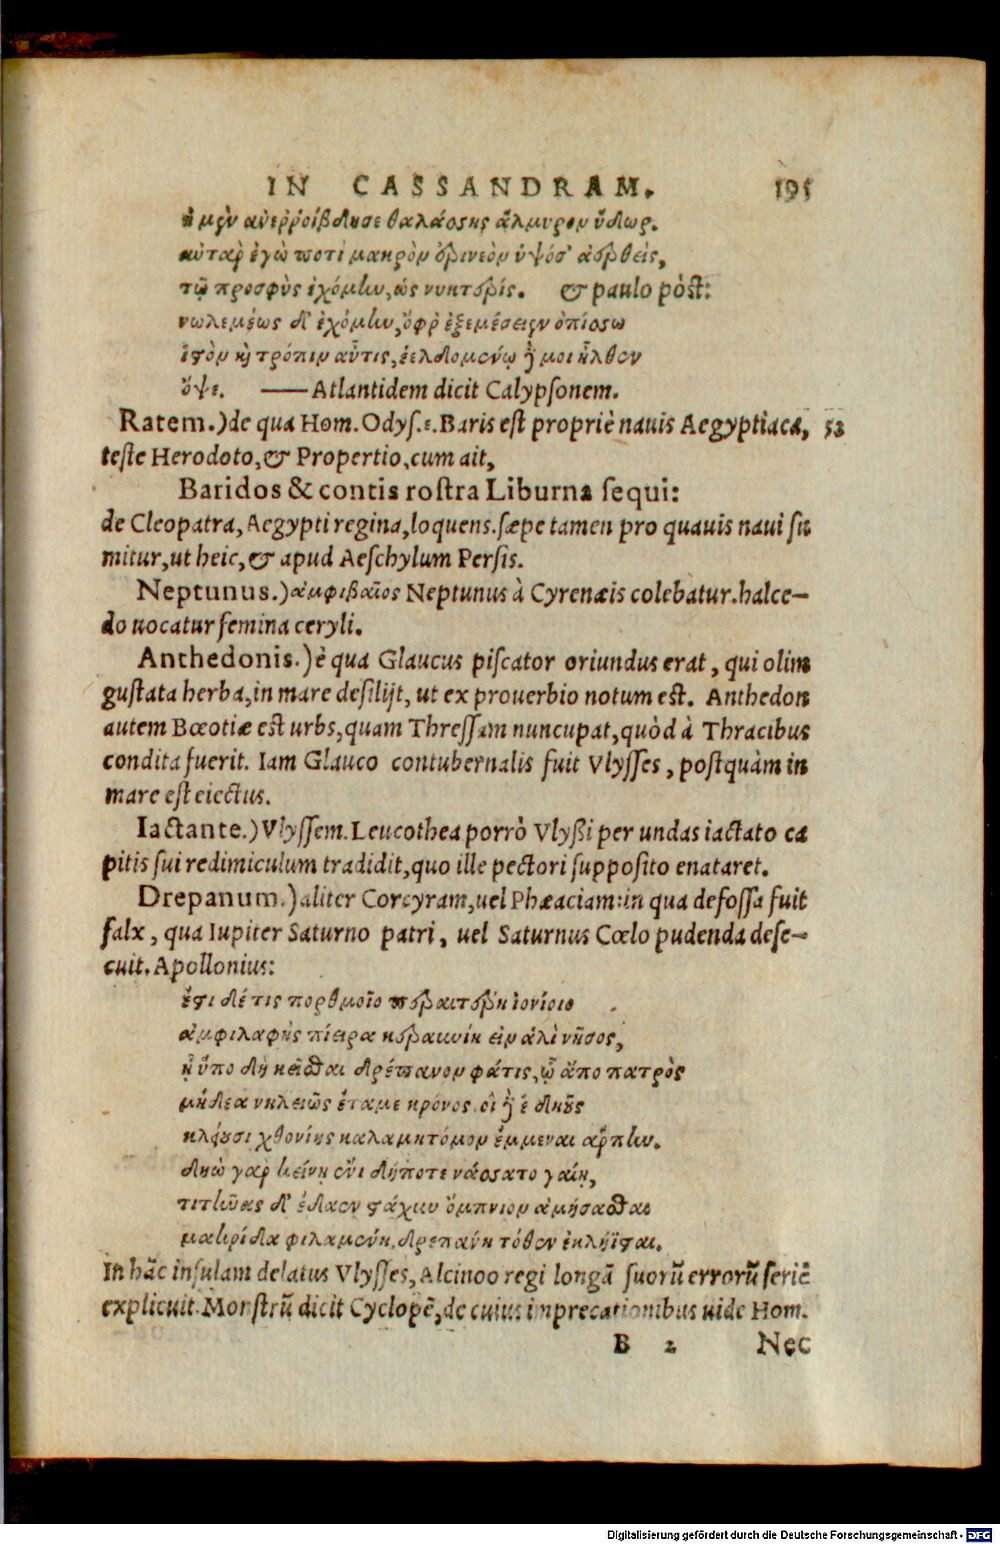 IN CASSANDRAM. 195
ἡ μὲν ἀνεῤῥοίβδησε θαλάσσης ἅλμυρον ὕδωρ.
αὐτὰρ ἐγὼ ποτὶ μακρὸν ἐρινεὸν ὑψόσ' ἀερθεὶς,
τῷ προσφὺς ἐχόμην, ὡς νυκτερίς. & paulo pòst:
νωλεμέως δ' ἐχόμην, ὄφρ' ἐξεμέσειεν ὀπίσσω
ἱστὸν καὶ τρόπιν αὖτις, ἐελδομένῳ δέ μοι ἦλθον
ὄψε. —— Atlantidem dicit Calypsonem.
Ratem.) de qua Hom. Odys. ε. Baris est propriè nauis Aegyptiaca, 52
teste Herodoto, & Propertio, cum ait,
Baridos & contis rostra Liburna sequi:
de Cleopatra, Aegypti regina, loquens. sæpe tamen pro quauis naui su
mitur, ut heic, & apud Aeschylum Persis.
Neptunus.) ἀμφιβαῖος Neptunus à Cyrenæis colebatur. halce-
do uocatur femina ceryli.
Anthedonis.) è qua Glaucus piscator oriundus erat, qui olim
gustata herba, in mare desilijt, ut ex prouerbio notum est. Anthedon
autem Bœotiæ est urbs, quam Thressam nuncupat, quòd à Thracibus
condita fuerit. Iam Glauco contubernalis fuit Vlysses, postquàm in
mare est eiectus.
Iactante.) Vlyssem. Leucothea porrò Vlyßi per undas iactato ca
pitis sui redimiculum tradidit, quo ille pectori supposito enataret.
Drepanum.) aliter Corcyram, uel Phæaciam: in qua defossa fuit
falx, qua Iupiter Saturno patri, uel Saturnus Cœlo pudenda dese-
cuit. Apollonius:
ἔστι δέ τις πορθμοῖο παραιτέρη ἰονίοιο
ἀμφιλαφὴς πίειρα κεραυνίῃ εἰν ἁλὶ νῆσος,
ᾗ ὕπο δὴ κεῖσθαι δρέπανον φάτις, ᾧ ἄπο πατρὸς
μήδεα νηλειῶς ἔταμε κρόνος. οἱ δέ ἑ δηοῦς
κλείουσι χθονίης καλαμητόμον ἔμμεναι ἅρπην.
δηὼ γὰρ κείνῃ ἐνὶ δήποτε νάσσατο γαίῃ,
τιτῆνας δ' ἔδαεν στάχυν ὄμπνιον ἀμήσασθαι
μακρίδα φιλαμένη. δρεπάνη τόθεν ἐκλήϊσται.
In hāc insulam delatus Vlysses, Alcinoo regi longā suorū errorū seriē
explicuit. Monstrū dicit Cyclopē, de cuius imprecationibus uide Hom.
B 2 Nec
Digitalisierung gefördert durch die Deutsche Forschungsgemeinschaft - DFG